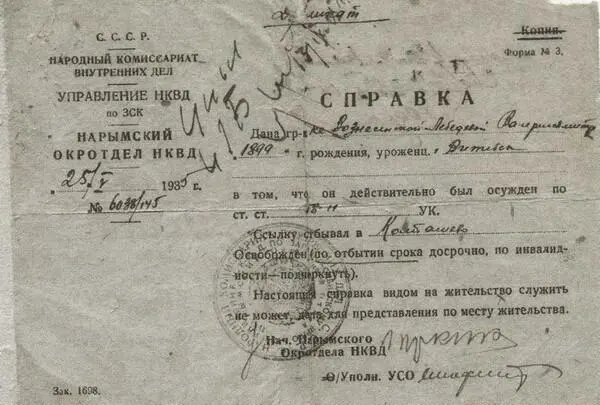 Копия.
Форма № 3.
С. С. С. Р.
НАРОДНЫЙ КОМИССАРИАТ
ВНУТРЕННИХ ДЕЛ
УПРАВЛЕНИЕ НКВД
по ЗСК
НАРЫМСКИЙ
ОКРОТДЕЛ НКВД
25/V 1935 г.
№ 6038/145
СПРАВКА
Дана гр-ке Вознесенской-Лебедевой
1899 г. рождения, уроженц. Витебск
в том, что он действительно был осужден по
ст. ст. 58-11 УК.
Ссылку отбывал в Колпашево
Освобожден (по отбытии срока досрочно, по инвалид-
ности—подчеркнуть).
Настоящая справка видом на жительство служить
не может, дана для представления по месту жительства.
Нач. Нарымского
Окротдела НКВД
О/Уполн. УСО
Зак. 1698.